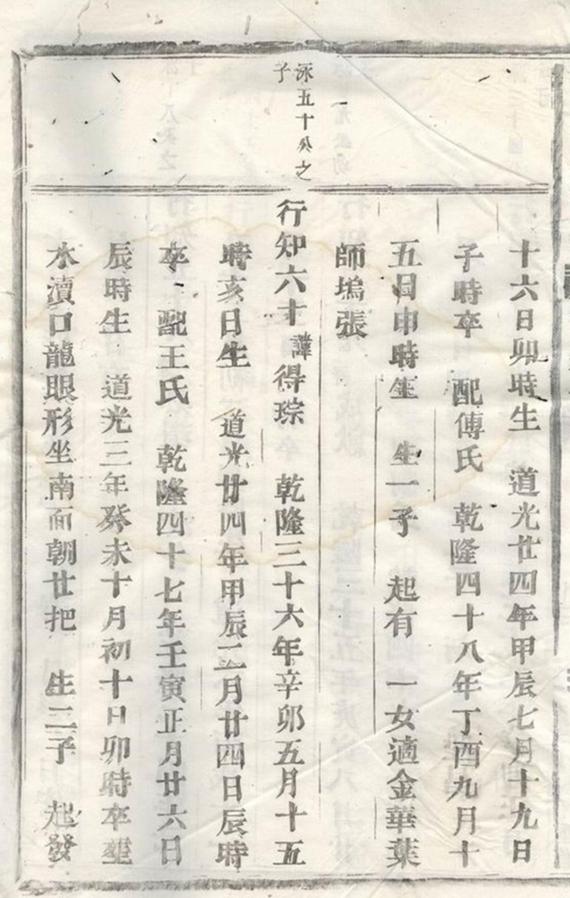 十六日卯時生 道光廿四年甲辰七月十九日
子時卒 配傅氏 乾隆四十八年丁酉九月十
五日申時生 生一子 起有 一女適金華葉
師塢張
泳五十八之
子
行知六十 諱得琮 乾隆三十六年辛卯五月十五
時亥日生 道光廿四年甲辰二月廿四日辰時
卒 配王氏 乾隆四十七年壬寅正月廿六日
辰時生 道光三年癸未十月初十日卯時卒塟
水瀆口龍眼形坐南面朝廿把 生二子 起發